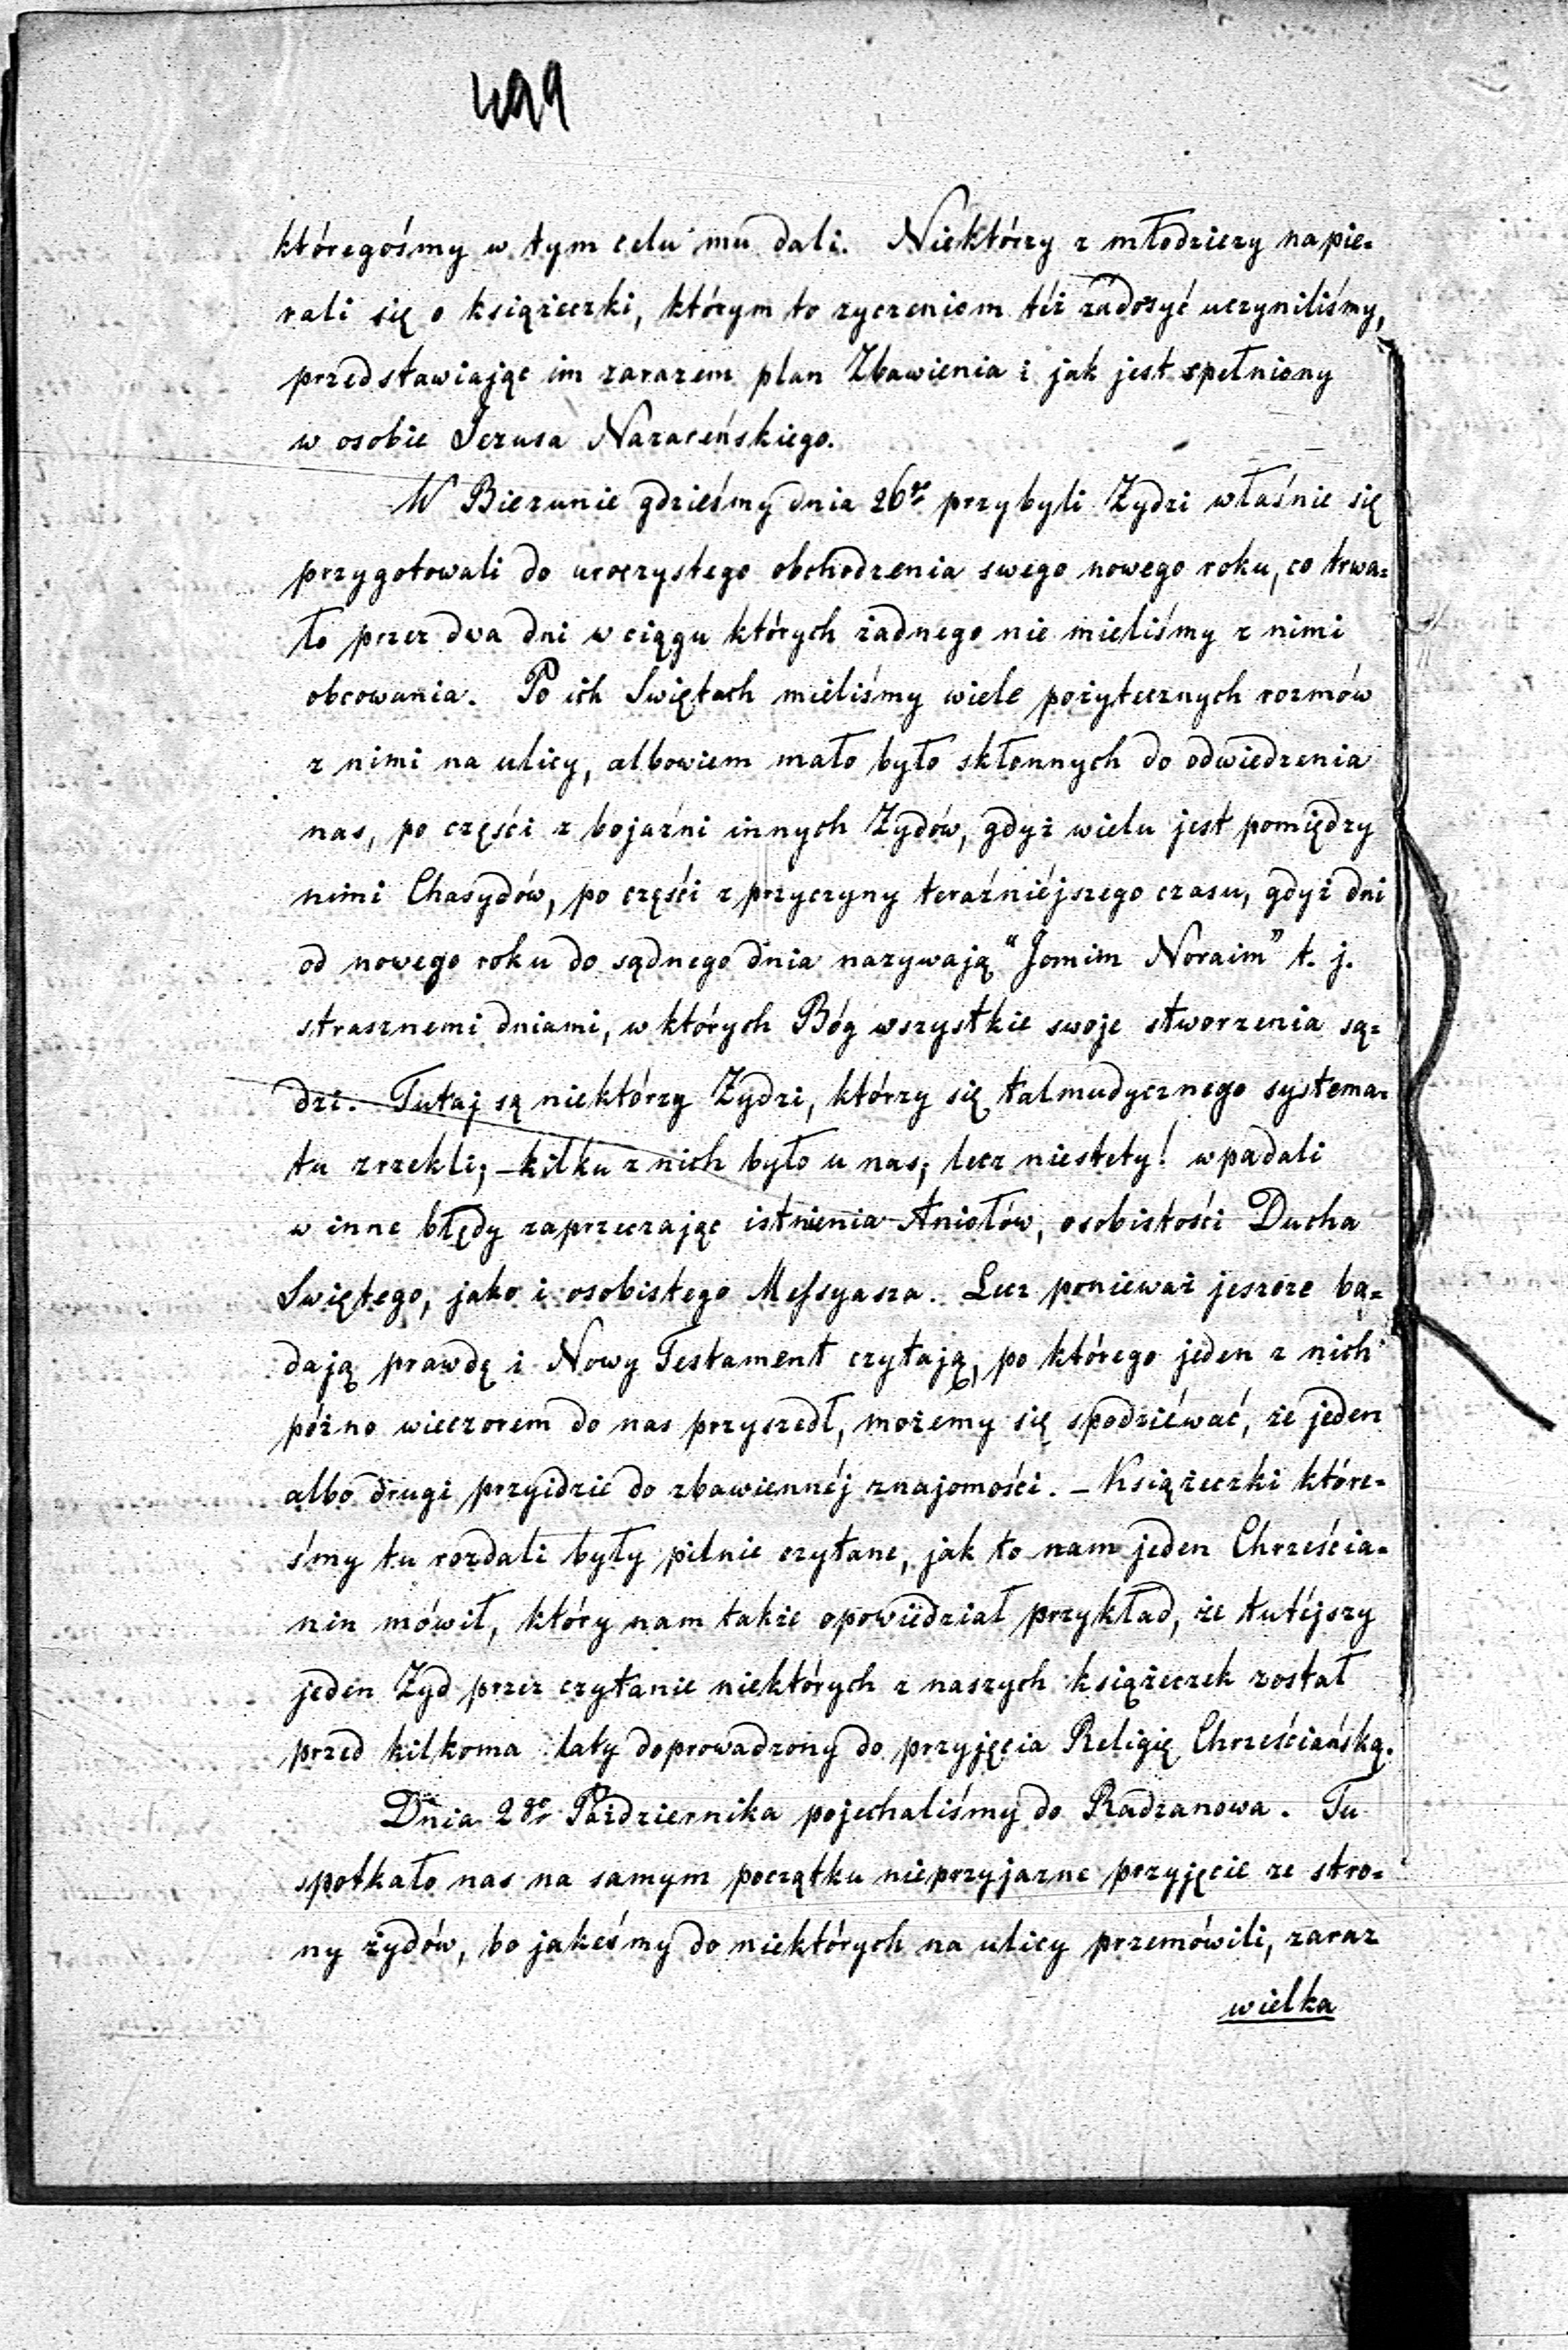 499
któregośmy w tym celu mu dali. Niektórzy z młodzieży napie-
rali się o książeczki, którym to życzeniom téż zadosyć uczyniliśmy,
przedstawiając im zarazem plan Zbawienia i jak jest spełniony
w osobie Jezusa Nazareńskiego.
W Bieżunie gdzieśmy dnia 26go przybyli Żydzi właśnie się
przygotowali do uroczystego obchodzenia swego nowego roku, co trwa-
ło przez dwa dni w ciągu których żadnego nie mieliśmy z nimi
obcowania. Po ich Świętach mieliśmy wiele pożytecznych rozmów
z nimi na ulicy, albowiem mało było skłonnych do odwiedzenia
nas, po części z bojaźni innych Żydów, gdyż wielu jest pomiędzy
nimi Chasydów, po części z przyczyny teraźniéjszego czasu, gdyż dni
od nowego roku do sądnego dnia nazywają "Jomim Noraim" t. j.
strasznemi dniami, w których Bóg wszystkie swoje stworzenia są-
dzi. Tutaj są niektórzy Żydzi, którzy się talmudycznego systema-
tu zrzekli; – kilku z nich było u nas; lecz niestety! wpadali
w inne błędy zaprzeczając istnienia Aniołów, osobistości Ducha
Świętego, jako i osobistego Messyasza. Lecz ponieważ jeszcze ba-
dają prawdę i Nowy Testament czytają, po którego jeden z nich
późno wieczorem do nas przyszedł, możemy się spodziéwać, że jeden
albo drugi przyidzie do zbawiennéj znajomości. – Książeczki które-
śmy tu rozdali były pilnie czytane, jak to nam jeden Chrześcia-
nin mówił, który nam także opowiedział przykład, że tutéjszy
jeden Żyd przez czytanie niektórych z naszych książeczek został
przed kilkoma laty doprowadzony do przyjęcia Religię Chrześciańską.
Dnia 2go Października pojechaliśmy do Radzanowa. Tu
spotkało nas na samym początku nieprzyjazne przyjęcie ze stro-
ny żydów, bo jakeśmy do niektórych na ulicy przemówili, zaraz
wielka